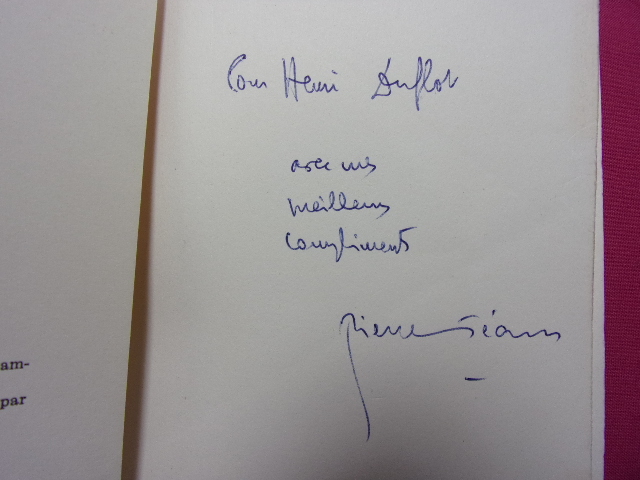 Pour Henri Duflot
avec mes
meilleurs
compliments
Pierre
am-
par